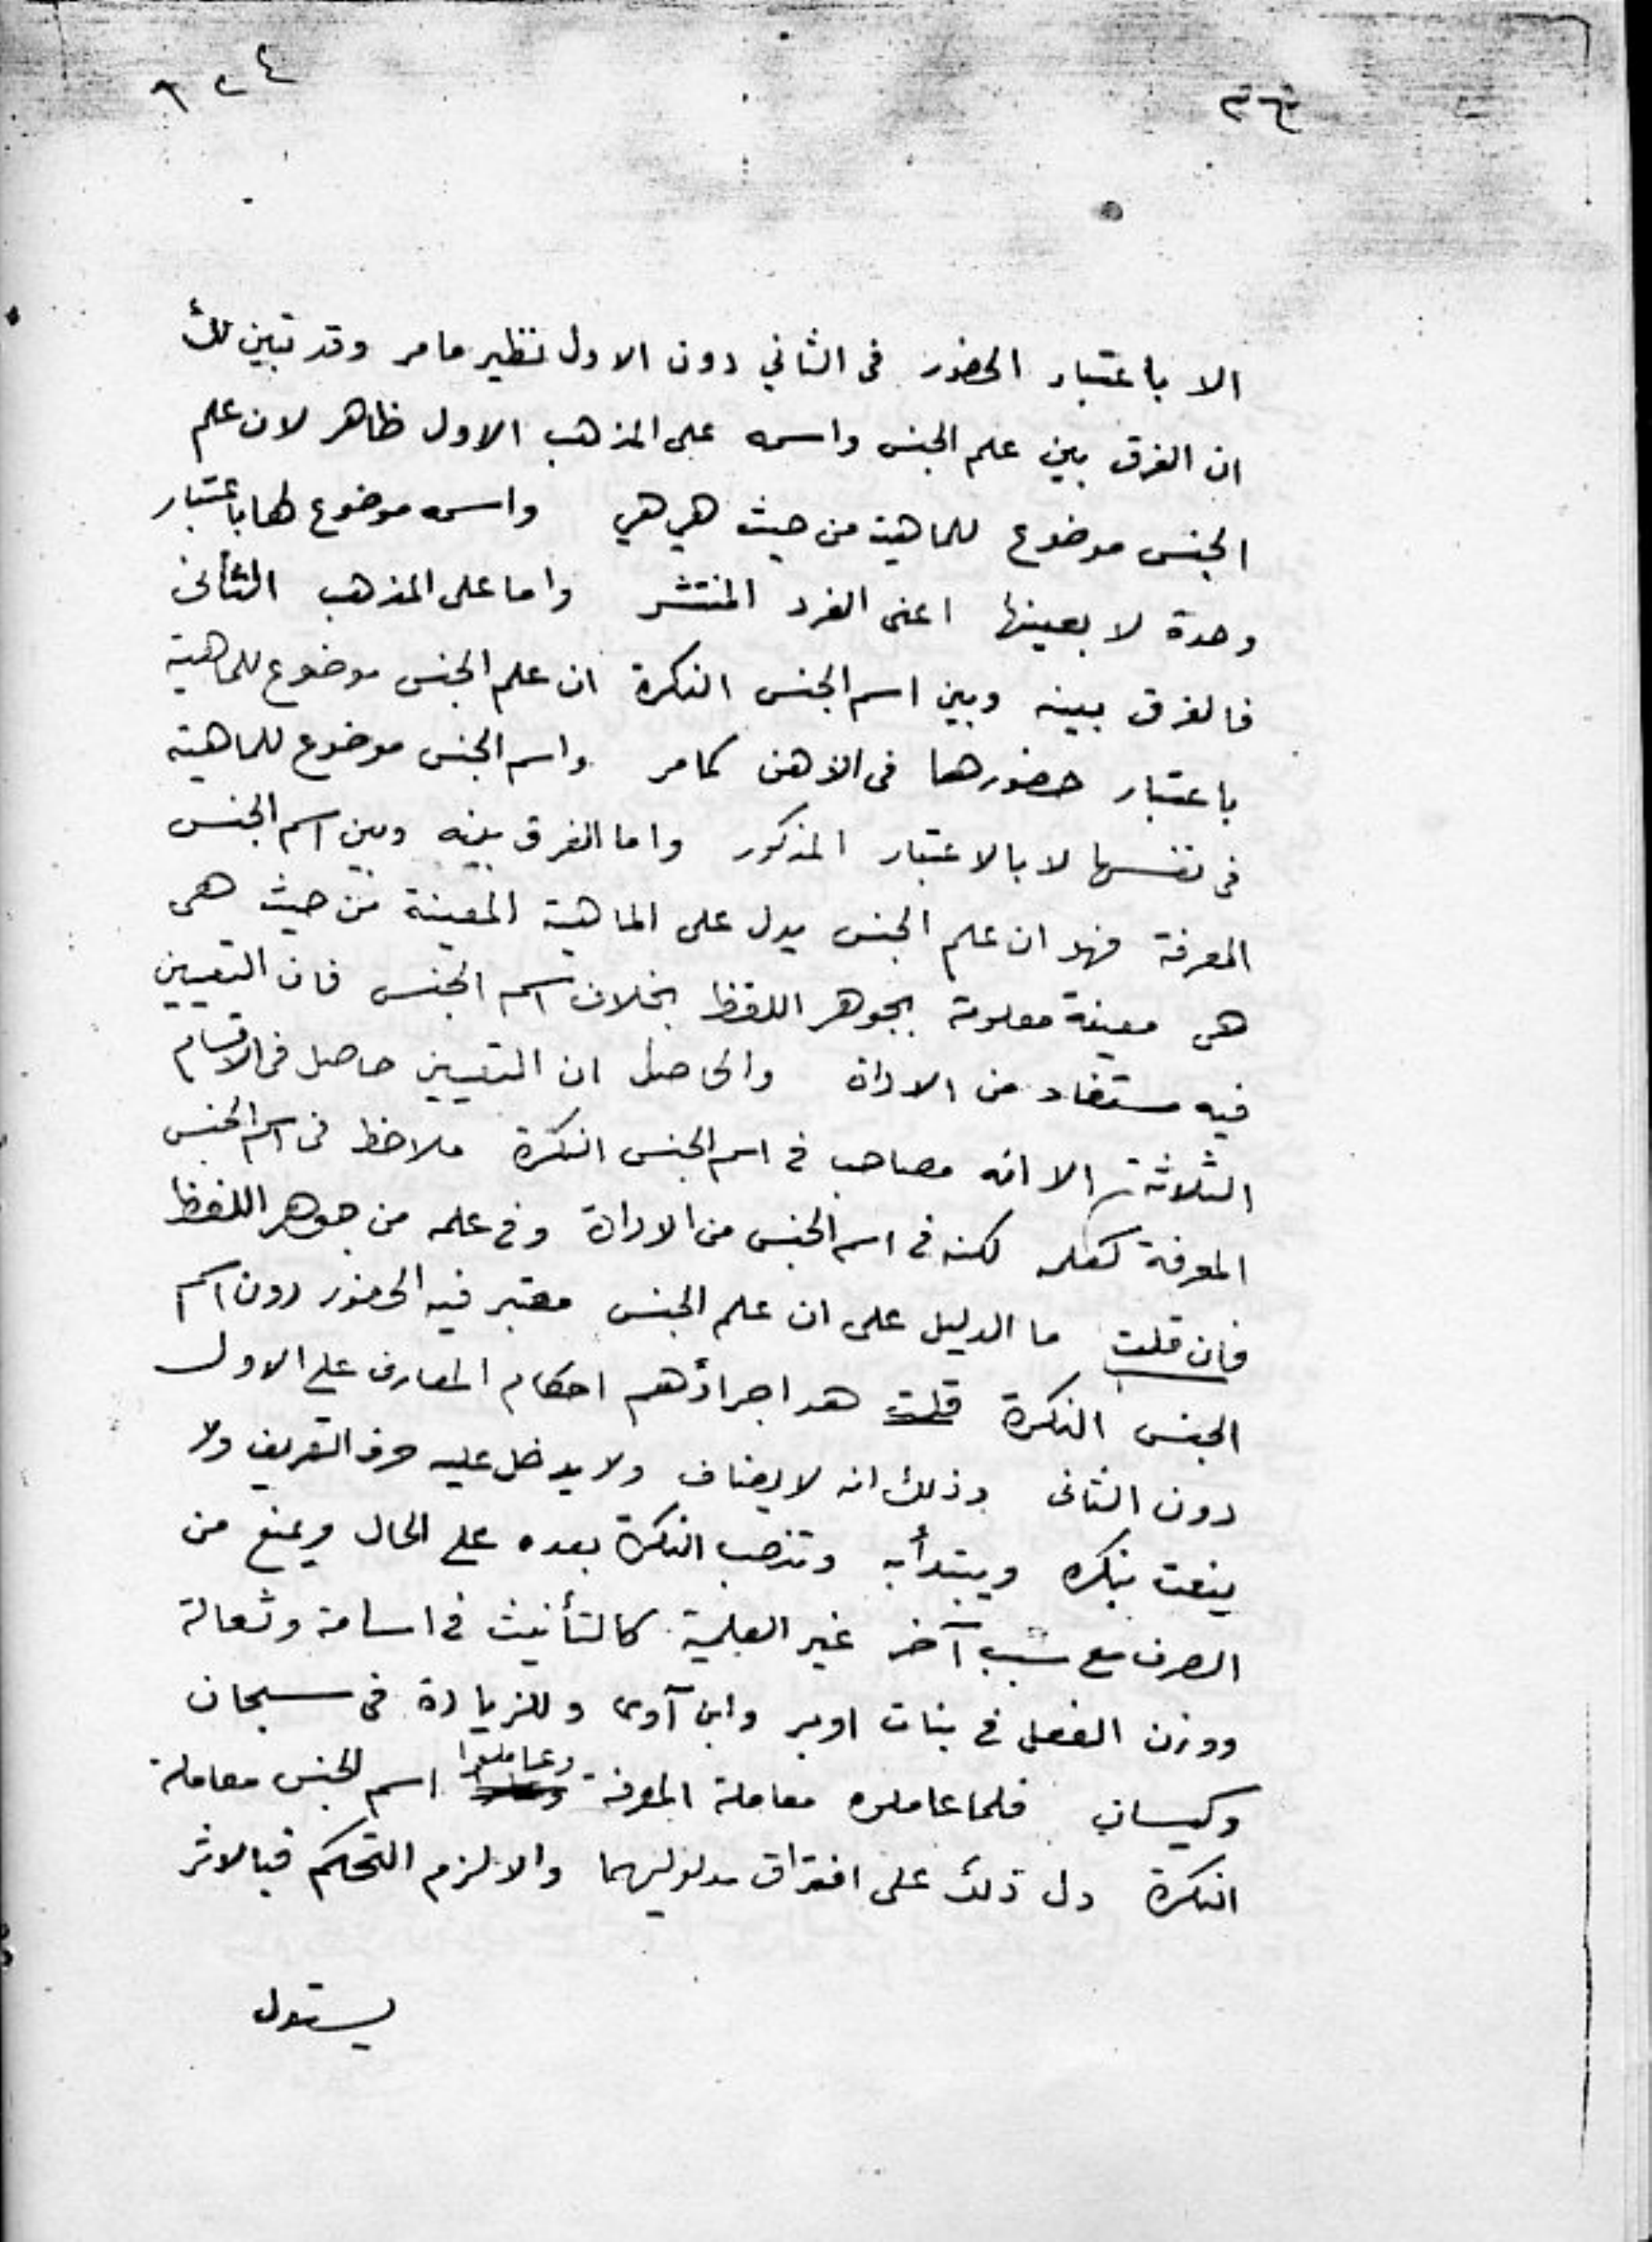 الا باعتبار الحضور فى الثاني دون الاول نظير مامر وقد تبين لك
ان الفرق بين علم الجنس واسمه على المذهب الاول ظاهر لان علم
الجنس موضوع للماهية من حيث هي هي واسمه موضوع لها باعتبار
وحدة لا بعينها اعنى الفرد المنتشر واما على المذهب الثانى
فالفرق بينه وبين اسم الجنس النكرة ان علم الجنس موضوع للماهية
باعتبار حضورها فى الذهن كمامر واسم الجنس موضوع للماهية
فى نفسها لا بالاعتبار المذكور واما الفرق بينه وبين اسم الجنس
المعرفة فهو ان علم الجنس يدل على الماهية المعينة من حيث هى
هى معينة معلومة بجوهر اللفظ بخلاف اسم الجنس فان التعيين
فيه مستفاد من الاداة والحاصل ان التعيين حاصل فى الاقسام
الثلاثة الا انه مصاحب فى اسم الجنس النكرة ملاحظ فى اسم الجنس
المعرفة كعلمه لكنه فى اسم الجنس من الاداة وفى علمه من جوهر اللفظ
فان قلت ما الدليل على ان علم الجنس معتبر فيه الحضور دون اسم
الجنس النكرة قلت هو اجراؤهم احكام المعارف على الاول
دون الثانى وذلك انه لا يضاف ولا يدخل عليه حرف التعريف ولا
ينعت بنكره ويبتدأ به وتنصب النكرة بعده على الحال ويمنع من
الصرف مع سبب آخر غير العلمية كالتأنيث فى اسامة وثعالة
ووزن الفعل فى بنات اوبر وابن آوى وللزيادة فى سبحان
وكيسان فلما عاملوه معاملة المعرفة وعاملوا اسم الجنس معاملة
النكرة دل ذلك على افتراق مدلوليهما والا لزم التحكم فبالاثر
يستدل